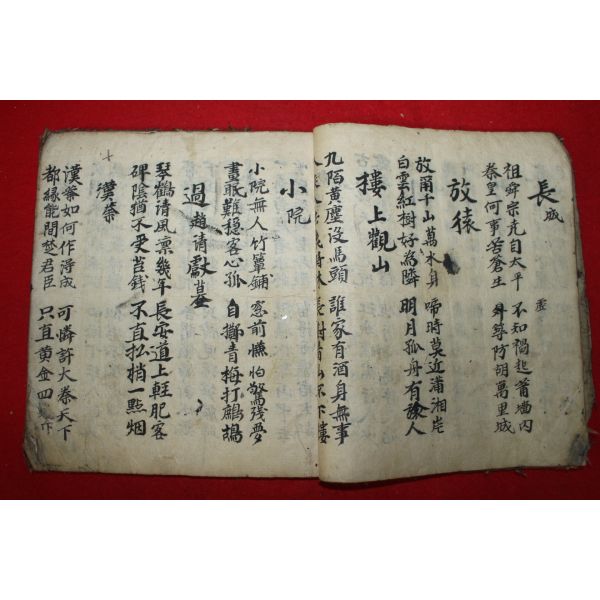 長城
祖舜宗堯自太平 不知禍起蕭墻內
秦皇何事苦蒼生 虛築防胡萬里城
虛
放猿
放爾千山萬水身 啼時莫近瀟湘岸
白雲紅樹好為隣 明月孤舟有旅人
樓上觀山
九陌黃塵沒馬頭 誰家有酒身無事
長對青山不下樓
小院
小院無人竹簟鋪 窓前懶怕驚殘夢
晝眠難穩客心孤 自擲青梅打鷓鴣
過趙清獻墓
琴鶴清風凜幾年 長安道上輕肥客
碑陰猶不受苔錢 不直松梢一點烟
漢祭
漢祭如何作得成 可憐許大秦天下
都緣能間楚君臣 只直黃金四